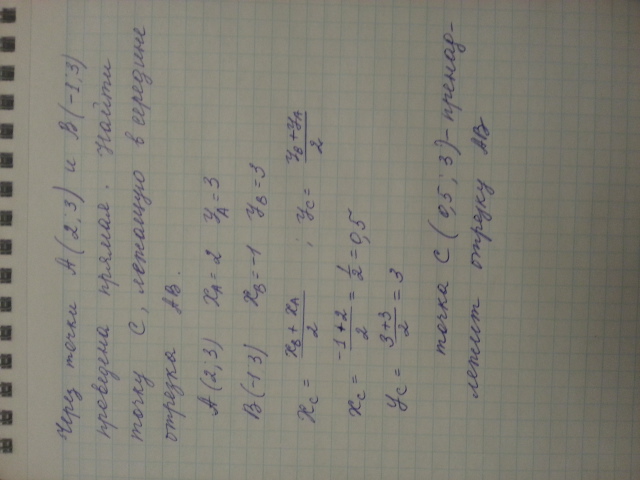 Через точки А(2;3) и В(-1;3)
проведена прямая. Найти
точку С, лежащую в середине
отрезка АВ.
А(2;3) xA = 2 yA = 3
В(-1 3) xB = -1 yB = 3
xC = (xB + xA)/2 ; yC = (yB + yA)/2
xC = (-1+2)/2 = 1/2 = 0,5
yC = (3+3)/2 = 3
точка С (0,5 ; 3) - пренад-
лежит отрезку АВ